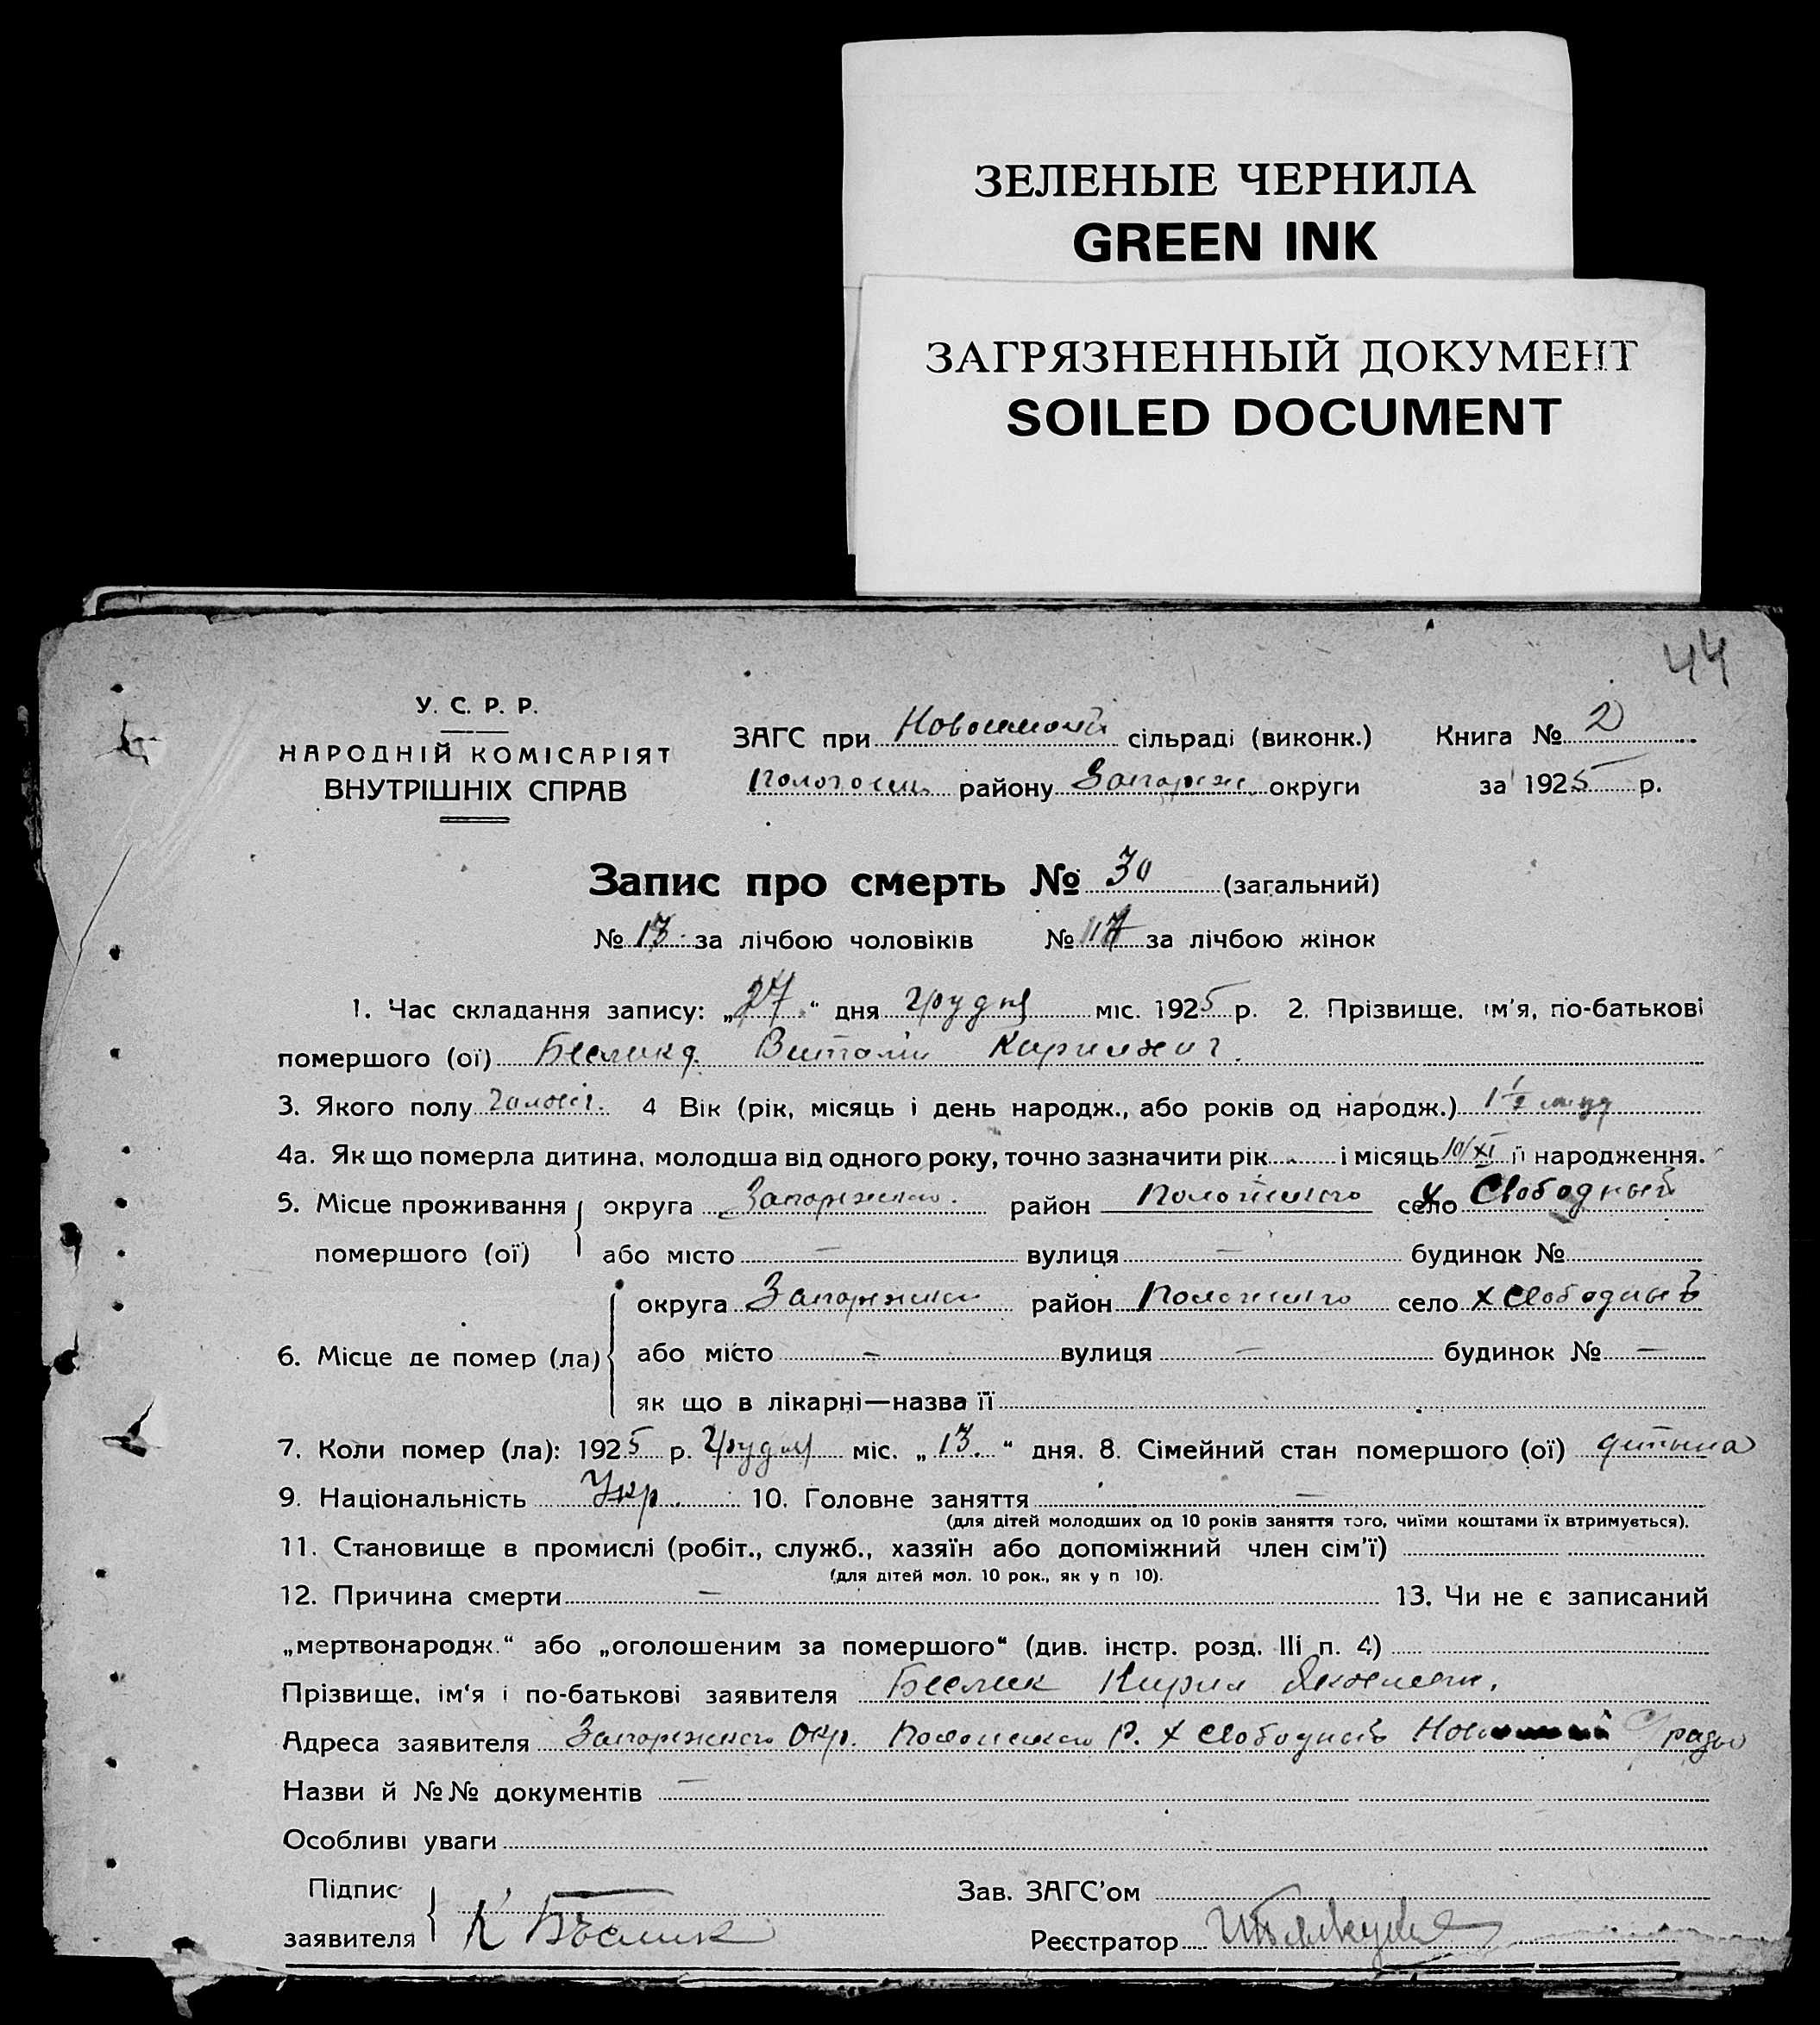 ЗЕЛЕНЫЕ ЧЕРНИЛА
GREEN INK
ЗАГРЯЗНЕННЫЙ ДОКУМЕНТ
SOILED DOCUMENT
44
У. С. Р. Р.
НАРОДНІЙ КОМІСАРІЯТ
ВНУТРІШНІХ СПРАВ
ЗАГС при сільраді (виконк.) Книга № 2
району Запоріж. округи за 1925 р.
Запис про смерть № 30 (загальний)
№ 13 за лічбою чоловіків № 17 за лічбою жінок
1. Час складання запису: „27" дня грудня міс. 1925 р. 2. Прізвище, ім'я, по-батькові
помершого (ої) Виталій Кирилович.
3. Якого полу чоловіч. 4 Вік (рік, місяць і день народж., або років од народж.) 1 1/2
4а. Як що померла дитина, молодша від одного року, точно зазначити рік і місяць 10/XI її народження.
5. Місце проживання округа район село х Свободный
помершого (ої) або місто — вулиця — будинок №
округа район село х Свободный
6. Місце де помер (ла) або місто — вулиця — будинок № —
як що в лікарні—назва її
7. Коли помер (ла): 1925 р. Грудня міс. „13." дня. 8. Сімейний стан помершого (ої) дитина
9. Національність Укр. 10. Головне заняття —
(для дітей молодших од 10 років заняття того, чиїми коштами їх втримується).
11. Становище в промислі (робіт., служб., хазяїн або допоміжний член сім'ї)
(для дітей мол. 10 рок., як у п 10).
12. Причина смерти — 13. Чи не є записаний
„мертвонародж." або „оголошеним за помершого" (див. інстр. розд. III п. 4)
Прізвище, ім'я і по-батькові заявителя Кирил Якович.
Адреса заявителя Окр. Р. х Свободный
Назви й №№ документів —
Особливі уваги
Підпис Зав. ЗАГС'ом
заявителя К Бѣлик Реєстратор